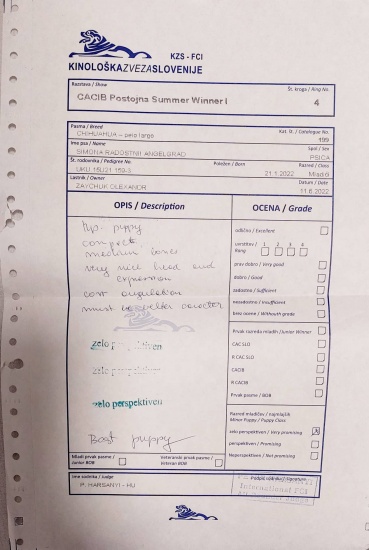 KZS - FCI
KINOLOŠKAZVEZASLOVENIJE
Razstava / Show
Št. kroga / Ring No.
CACIB Postojna Summer Winner I
4
Pasma / Breed
Kat. št. / Catalogue No.
CHIHUAHUA – dolgo
199
Ime psa / Name
Spol / Sex
SIMONA RADOSTNII ANGELGRAD
PSICA
Št. rodovnika / Pedigree No.
Poležen / Born
Razred / Class
21.1.2022
Mladiči
Lastnik / Owner
Datum / Date
ZAYCHUK OLEXANDR
11.6.2022
OPIS / Description
OCENA / Grade
typ. puppy
compact
medium bones
very nice head and
expression
coat
must
zelo perspektiven
zelo perspektiven
zelo perspektiven
Best puppy
odlično / Excellent
uvrstitev / Rang
1 2 3 4
prav dobro / Very good
dobro / Good
zadostno / Sufficient
nezadostno / Insufficient
brez ocene / Withouth grade
Prvak razreda mladih / Junior Winner
CAC SLO
R.CAC SLO
CACIB
R.CACIB
Prvak pasme / BOB
Razred mladičev / najmlajših
Minor Puppy / Puppy Class
zelo perspektiven / Very promising
perspektiven / Promising
Neperspektiven / Not promising
Mladi prvak pasme /
Junior BOB
Veteranski prvak pasme /
Veteran BOB
Ime sodnika / Judge
Podpis sodnika / Signature
P. HARSANYI - HU
International FCI